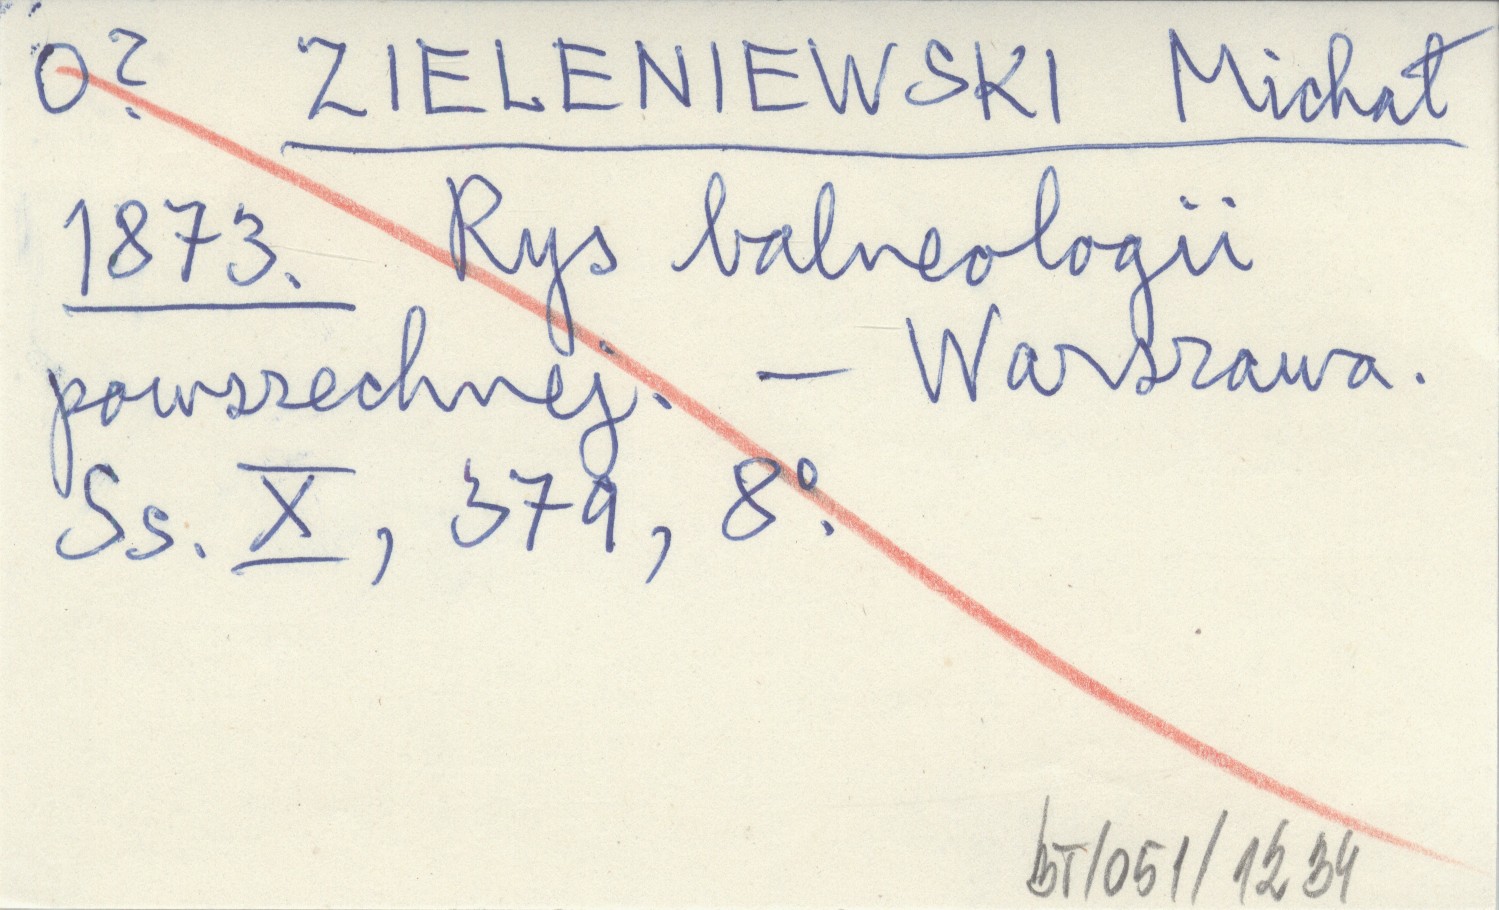 O? ZIELENIEWSKI Michał
1873. Rys balneologii
powszechnej. — Warszawa.
Ss. X, 379, 8°.
BT/051/1234